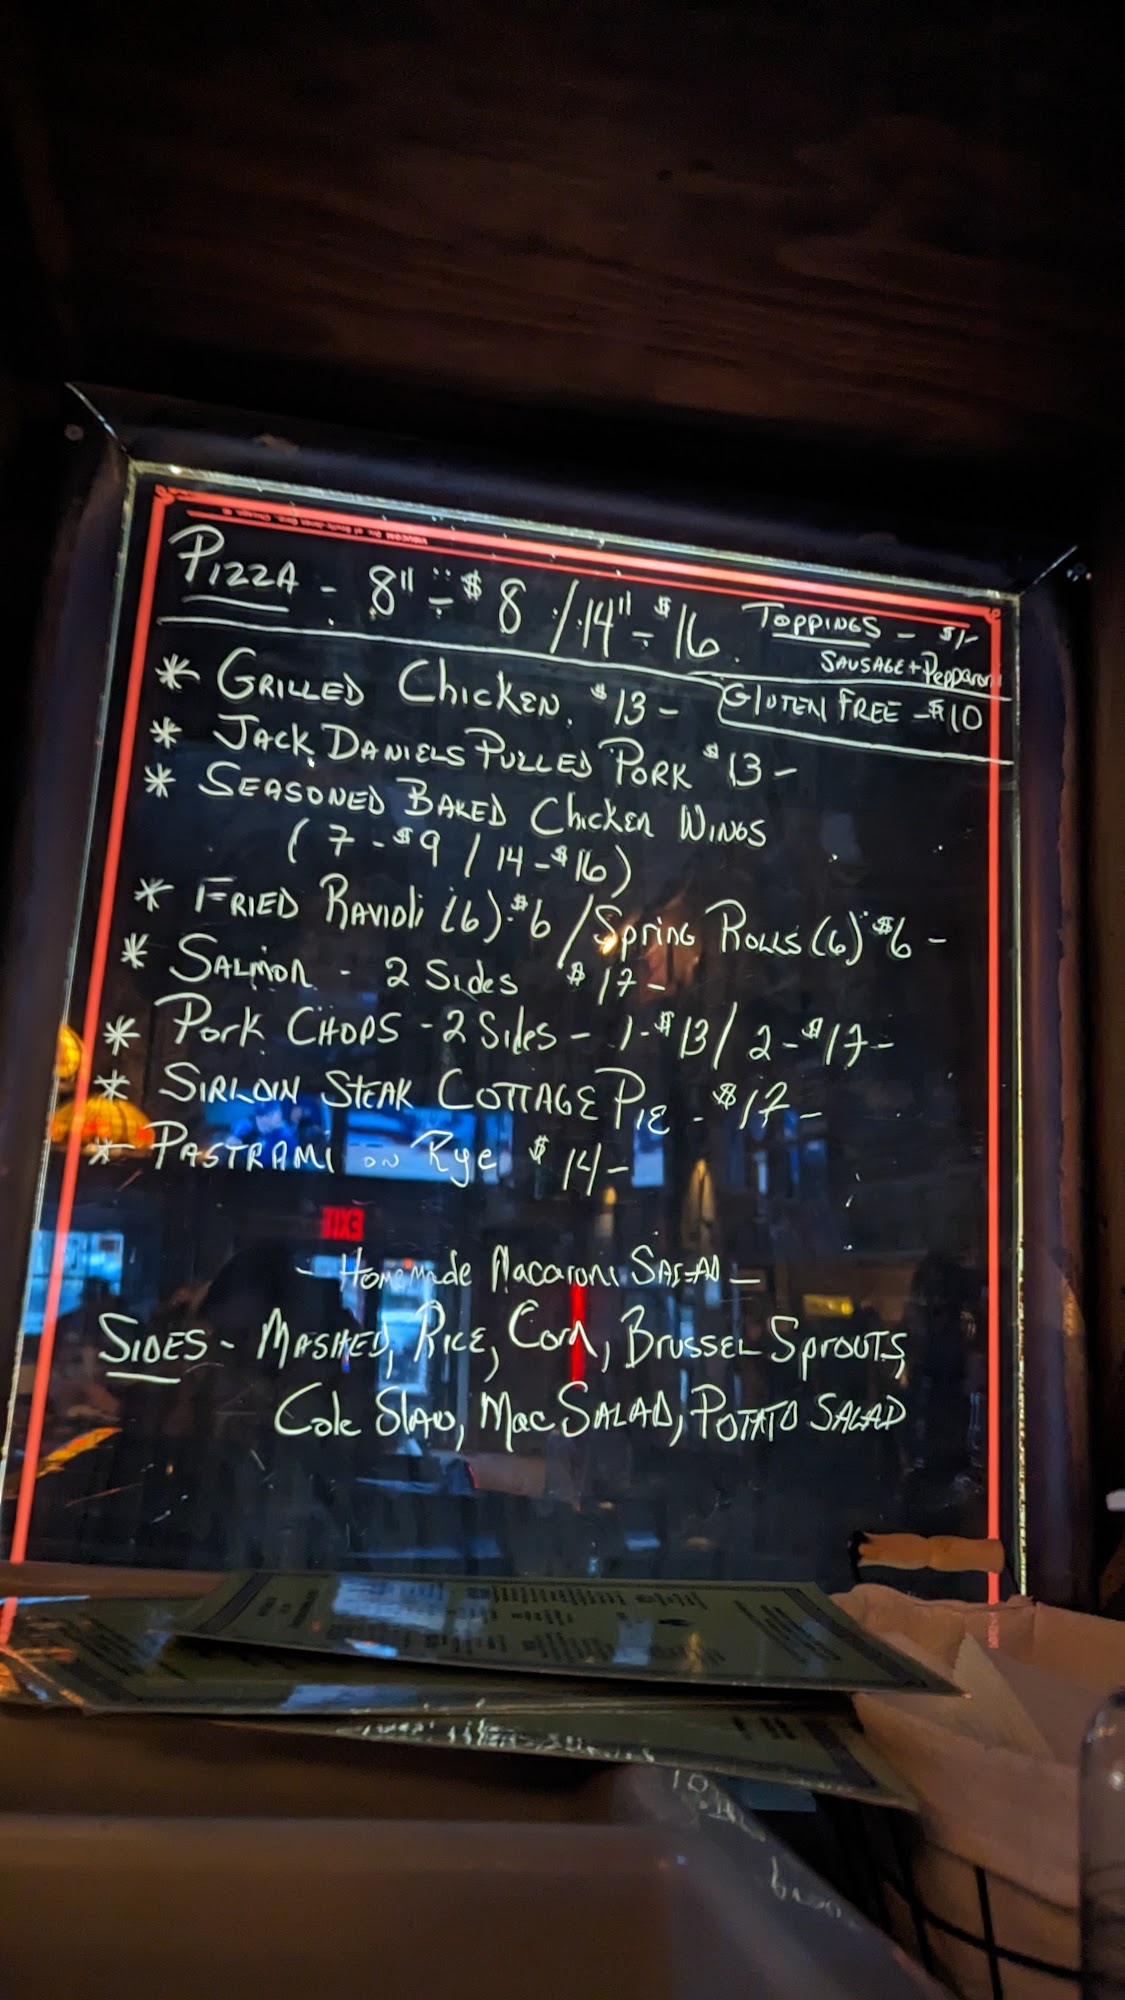 PIZZA - 8" - $8 / 14" - $16. TOPPINGS - $1-
SAUSAGE + Pepperoni
* GRILLED Chicken. $13 - GLUTEN FREE - $10
* JACK DANIELS PULLED PORK $13 -
* SEASONED BAKED Chicken WINGS
(7 - $9 / 14 - $16)
* FRIED RAVIOLI (6) $6 / Spring ROLLS (6) $6 -
* SALMON - 2 Sides $17 -
* Pork CHOPS - 2 Sides - 1 - $13 / 2 - $17 -
* SIRLOIN STEAK COTTAGE PIE - $17 -
* PASTRAMI ON Rye $14 -
- Homemade Macaroni SALAD -
SIDES - MASHED, RICE, Corn, BRUSSEL SprOUTS,
Cole Slaw, Mac SALAD, POTATO SALAD
EXIT